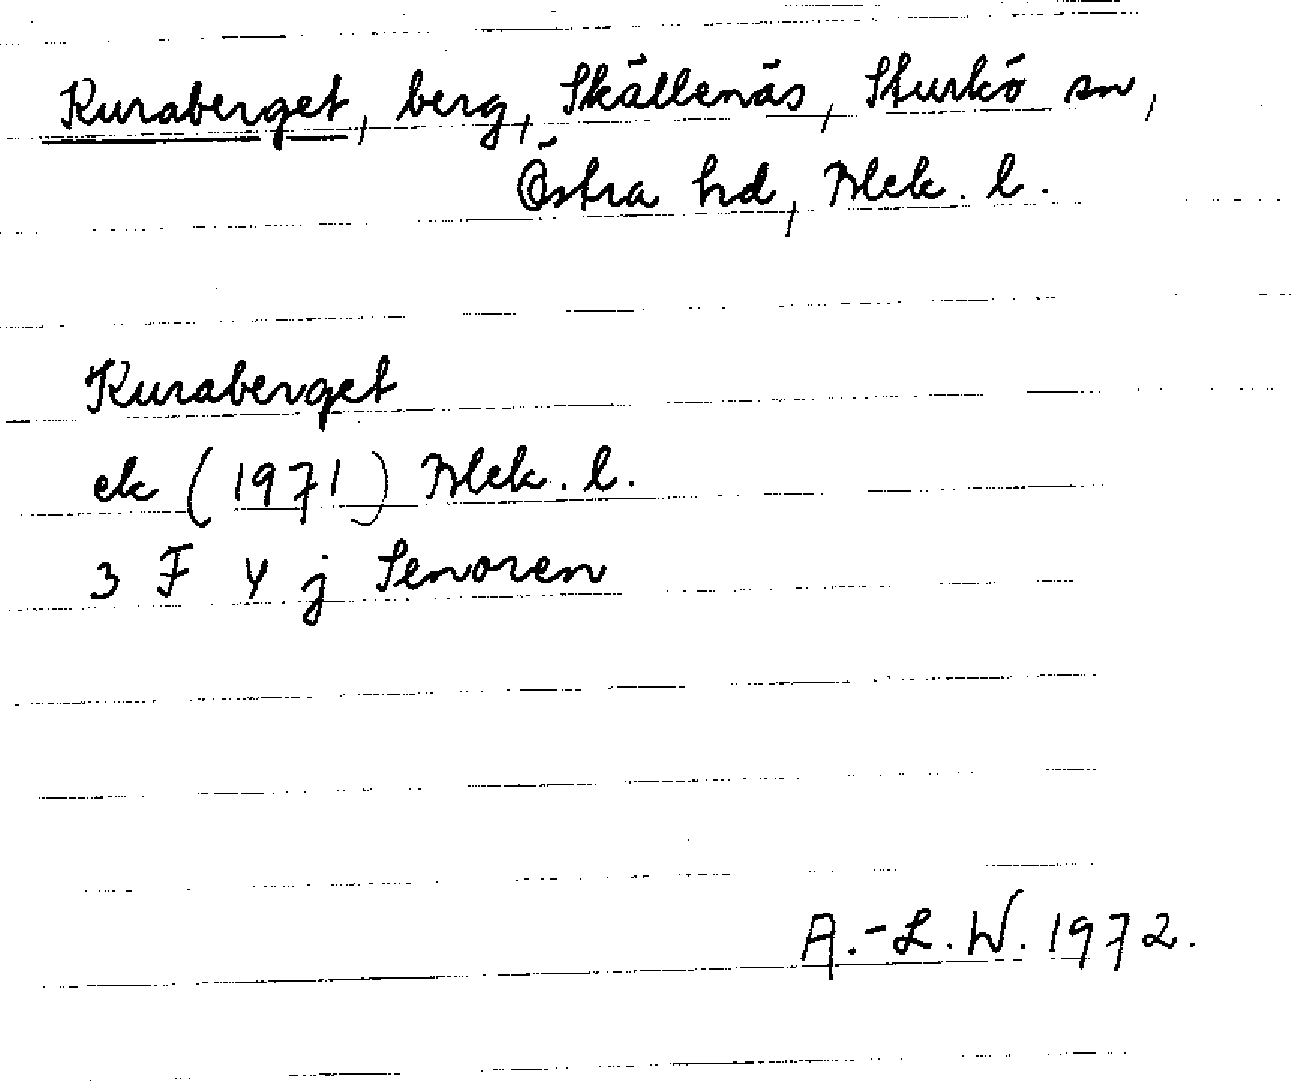 Kuraberget, berg, Skällenäs, Sturkö sn,
Östra hd, Blek. l.
Kuraberget
ek (1971) Blek. l.
3 F 4 j Senoren
A.-L. W. 1972.